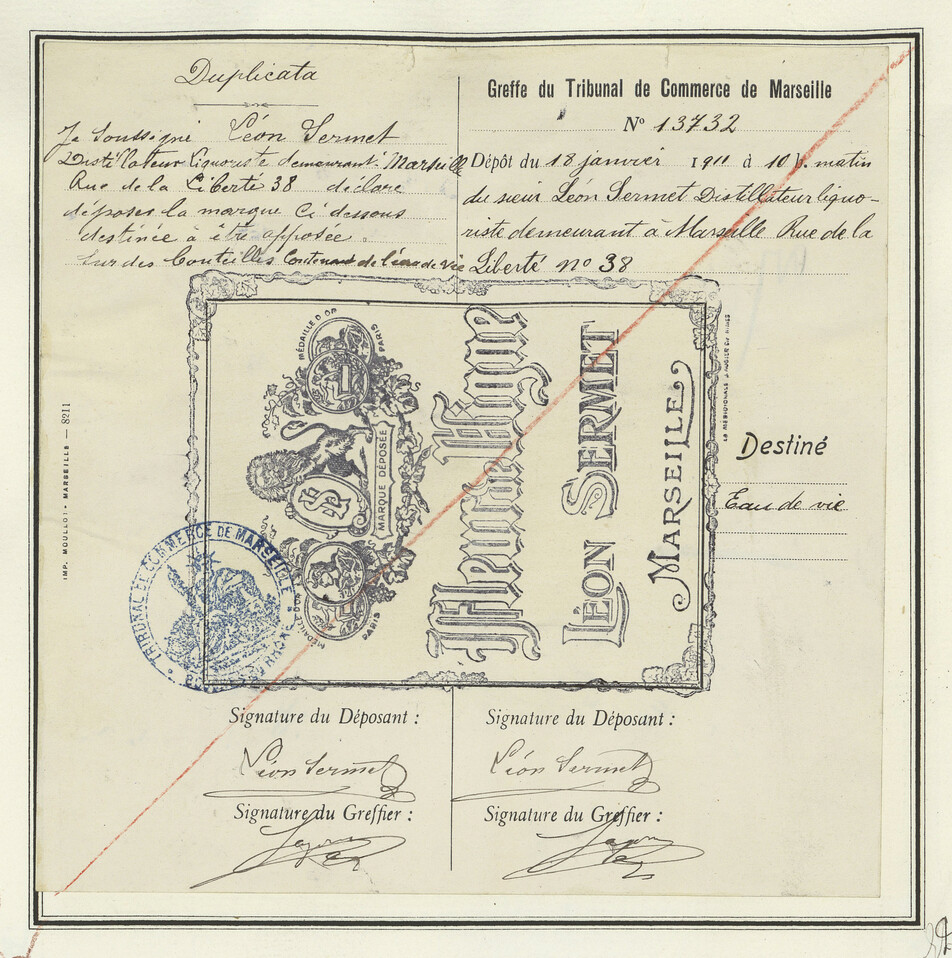 Duplicata
Je soussigné Léon Sermet
Distillateur Liquoriste demeurant Marseille
Rue de la Liberté 38 déclare
déposer la marque ci dessous
destinée à être apposée
sur des bouteilles contenant de l'eau de vie
Greffe du Tribunal de Commerce de Marseille
N° 13732
Dépôt du 18 janvier 1911 à 10 h. matin
du sieur Léon Sermet Distillateur liquo-
riste demeurant à Marseille Rue de la
Liberté no 38
IMP. MOULLOT - MARSEILLE — 8211
MÉDAILLE D'OR
PARIS
MARQUE DÉPOSÉE
MÉDAILLE
PARIS
LÉON SERMET
MARSEILLE
Destiné
Eau de vie
TRIBUNAL DE COMMERCE DE MARSEILLE
Signature du Déposant :
Léon Sermet
Signature du Greffier :
Signature du Déposant :
Léon Sermet
Signature du Greffier :